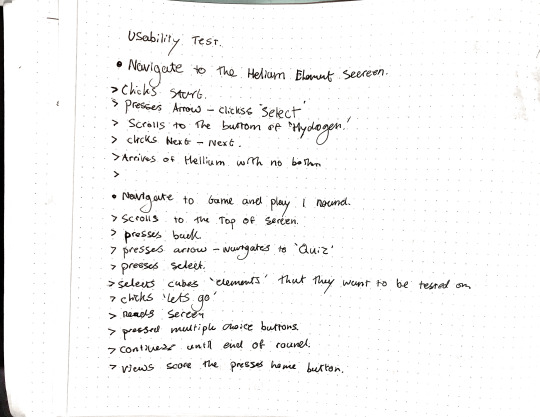 Usability Test.
• Navigate to the Helium Element Screen.
> Clicks Start.
> presses Arrow - clickss 'Select'
> Scrolls to the buttom of 'Hydogen.'
> clicks Next - Next.
> Arrives of Hellium with no bother
>
• Navigate to Game and play 1 round.
> Scrolls to the Top of Screen.
> presses back.
> presses arrow - navigates to 'Quiz'
> presses select.
> selects cubes 'elements' that they want to be tested on
> clicks 'lets go'
> Reads screen
> pressed multiple choice buttons.
> continues until end of round.
> views score the presses home button.